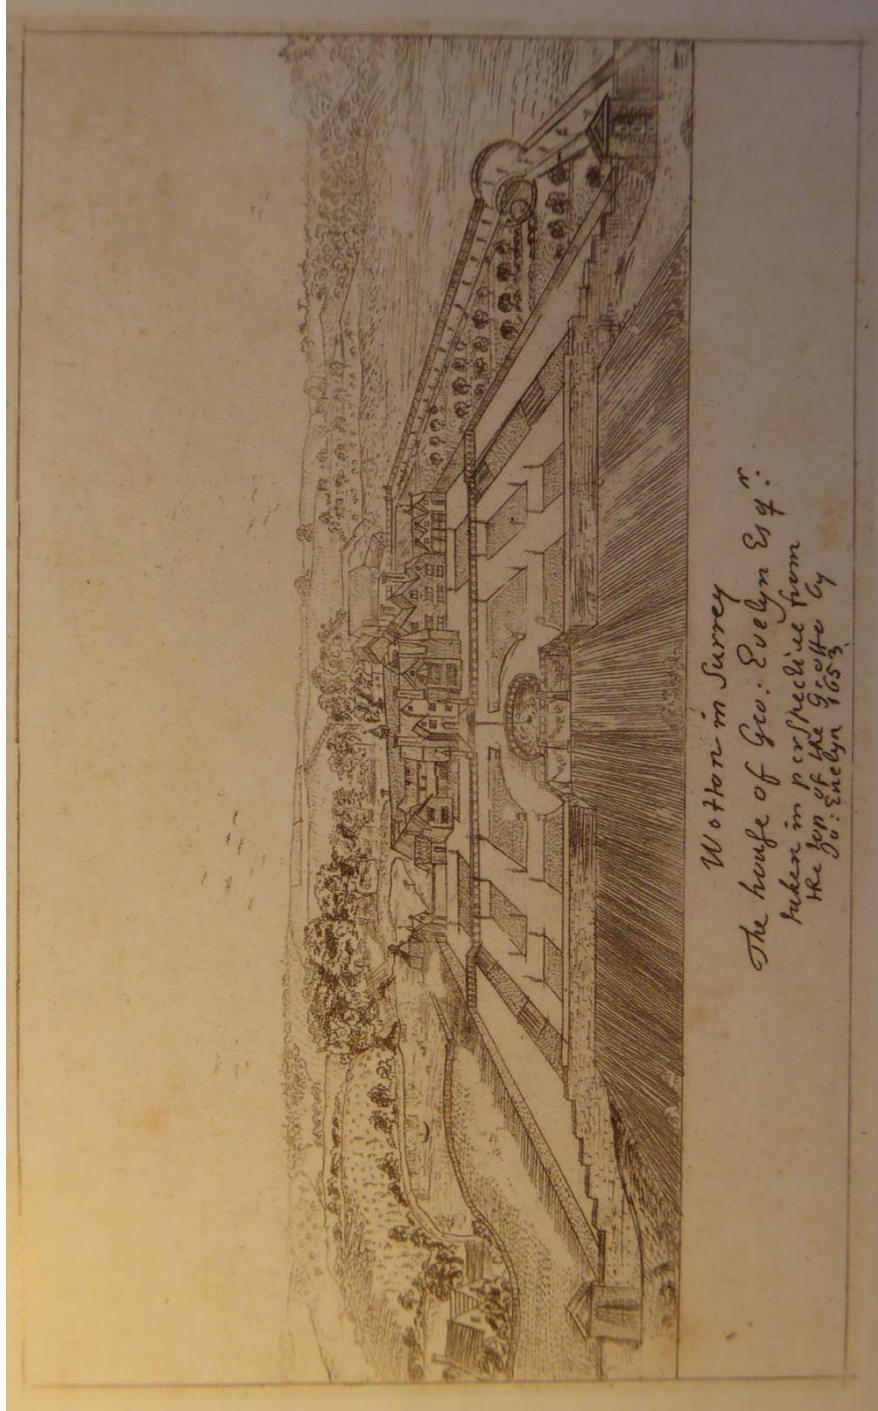 Wotton in Surrey
The house of Geo: Evelyn Esqr:
taken in perspective from
the top of the Grotto by
Jo: Evelyn 1653